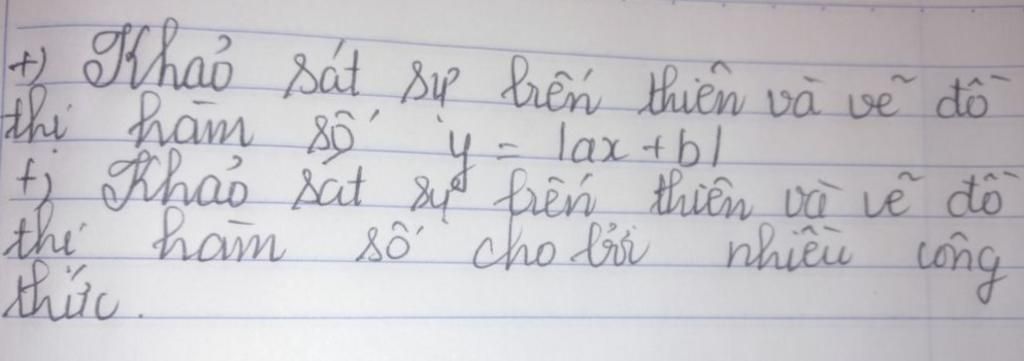 +) Khảo sát sự biến thiên và vẽ đồ
thị hàm số y = |ax + b|
+) Khảo sát sự biến thiên và vẽ đồ
thị hàm số cho bởi nhiều công
thức.